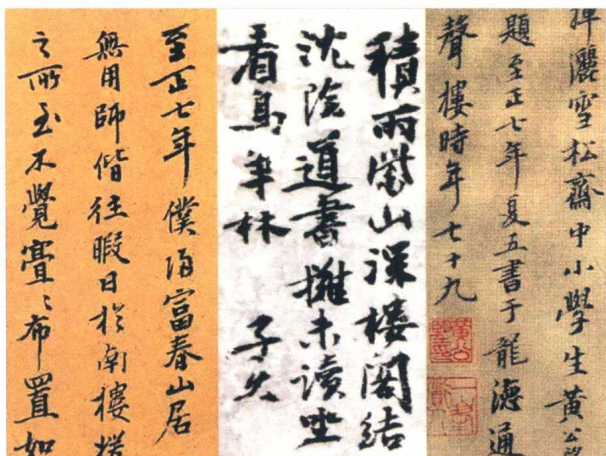 揮灑雪松齋中小學生黃公望
題至正七年夏五書于龍德通
聲樓時年七十九
積雨紫山深樓閣結
沈陰道書攤未讀坐
看鳥爭林 子久
至正七年僕歸富春山居
無用師偕往暇日於南樓援
之所至不覺亹〻布置如